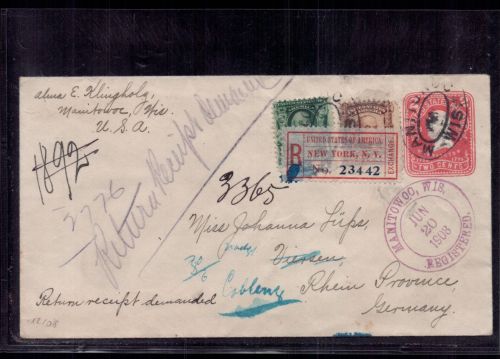 Alma E. Klingholz,
Manitowoc, Wis.
U. S. A.
1892
3376
Return Receipt Demanded
UNITED STATES OF AMERICA
R
NEW YORK, N.Y.
EXCHANGE
No. 23442
MANITOWOC
WIS.
TWO CENTS
3365
MANITOWOC, WIS.
JUN
20
1903
REGISTERED.
Miss Johanna Lüps,
Viersen
Coblenz
Rhein Province,
Germany.
Return receipt demanded